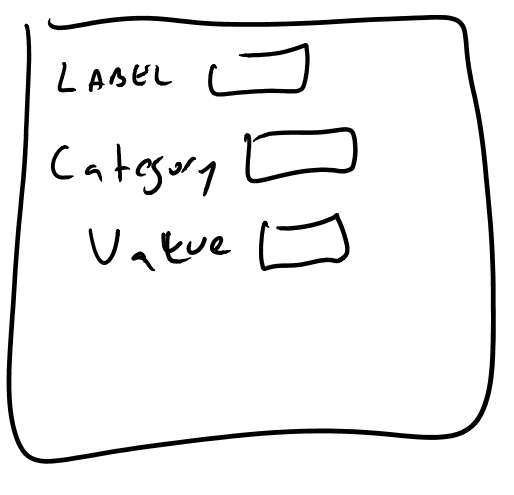 LABEL
Category
Value